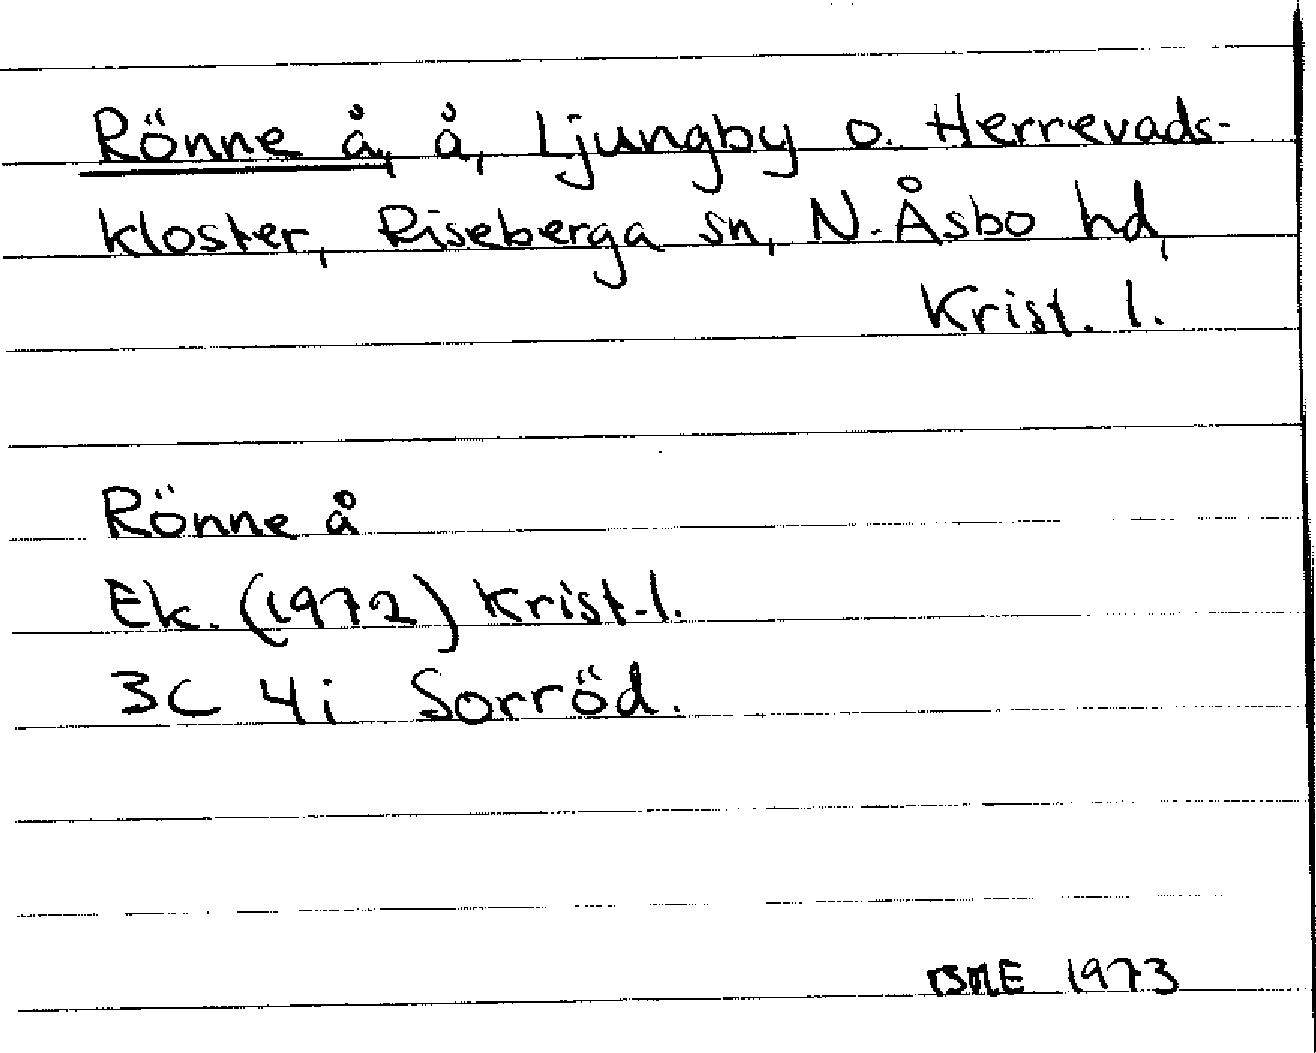 Rönne å, å, Ljungby o. Herrevads-
kloster, Riseberga sn, N. Åsbo hd,
Krist. l.
Rönne å
Ek. (1972) Krist. l.
3C 4i Sorröd.
1973